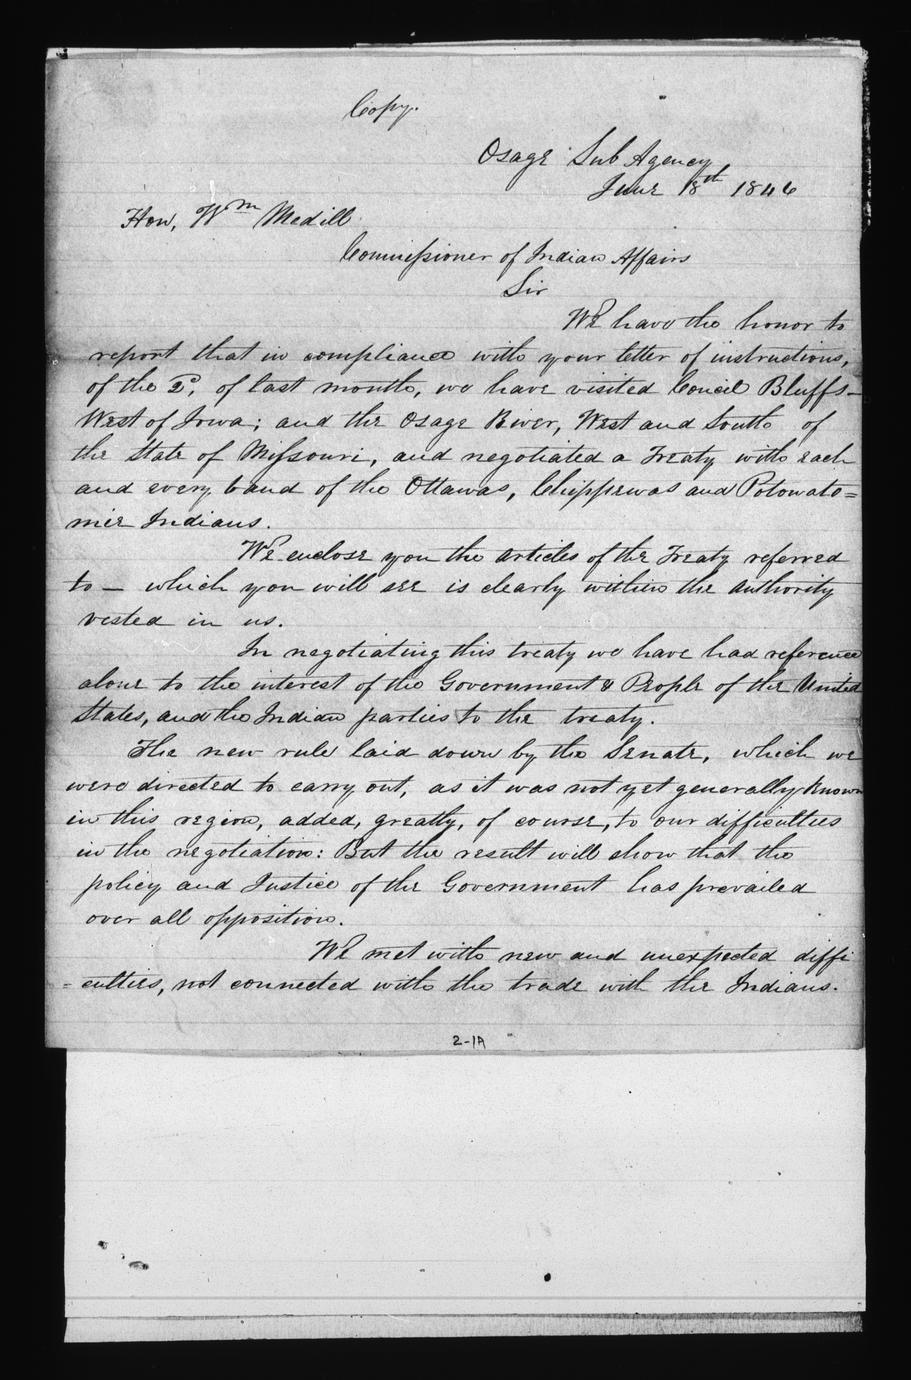 Copy.
Osage Sub Agency
June 18th 1846
Hon, Wm Medill
Commissioner of Indian Affairs
Sir
We have the honor to
report that in compliance with your letter of instructions,
of the 2d, of last month, we have visited Council Bluffs -
West of Iowa; and the Osage River, West and South of
the State of Missouri, and negotiated a Treaty with each
and every band of the Ottawas, Chippewas and Potowato=
mie Indians.
We enclose you the articles of the Treaty referred
to - which you will see is clearly within the authority
vested in us.
In negotiating this treaty we have had reference
alone to the interest of the Government & People of the United
States, and the Indian parties to the treaty.
The new rule laid down by the Senate, which we
were directed to carry out, as it was not yet generally known
in this region, added, greatly, of course, to our difficulties
in the negotiation: But the result will show that the
policy and Justice of the Government has prevailed
over all opposition.
We met with new and unexpected diffi
- culties, not connected with the trade with the Indians.
2-1A